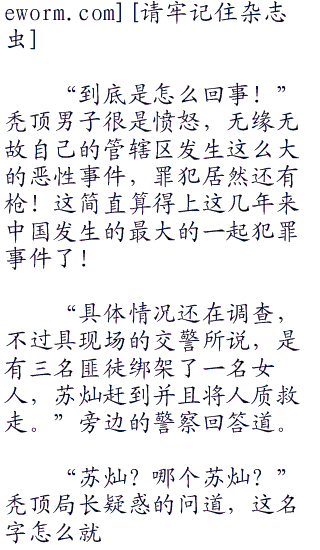 eworm.com][请牢记住杂志
虫]
“到底是怎么回事！”
秃顶男子很是愤怒，无缘无
故自己的管辖区发生这么大
的恶性事件，罪犯居然还有
枪！这简直算得上这几年来
中国发生的最大的一起犯罪
事件了！
“具体情况还在调查，
不过具现场的交警所说，是
有三名匪徒绑架了一名女
人，苏灿赶到并且将人质救
走。”旁边的警察回答道。
“苏灿？哪个苏灿？”
秃顶局长疑惑的问道，这名
字怎么就